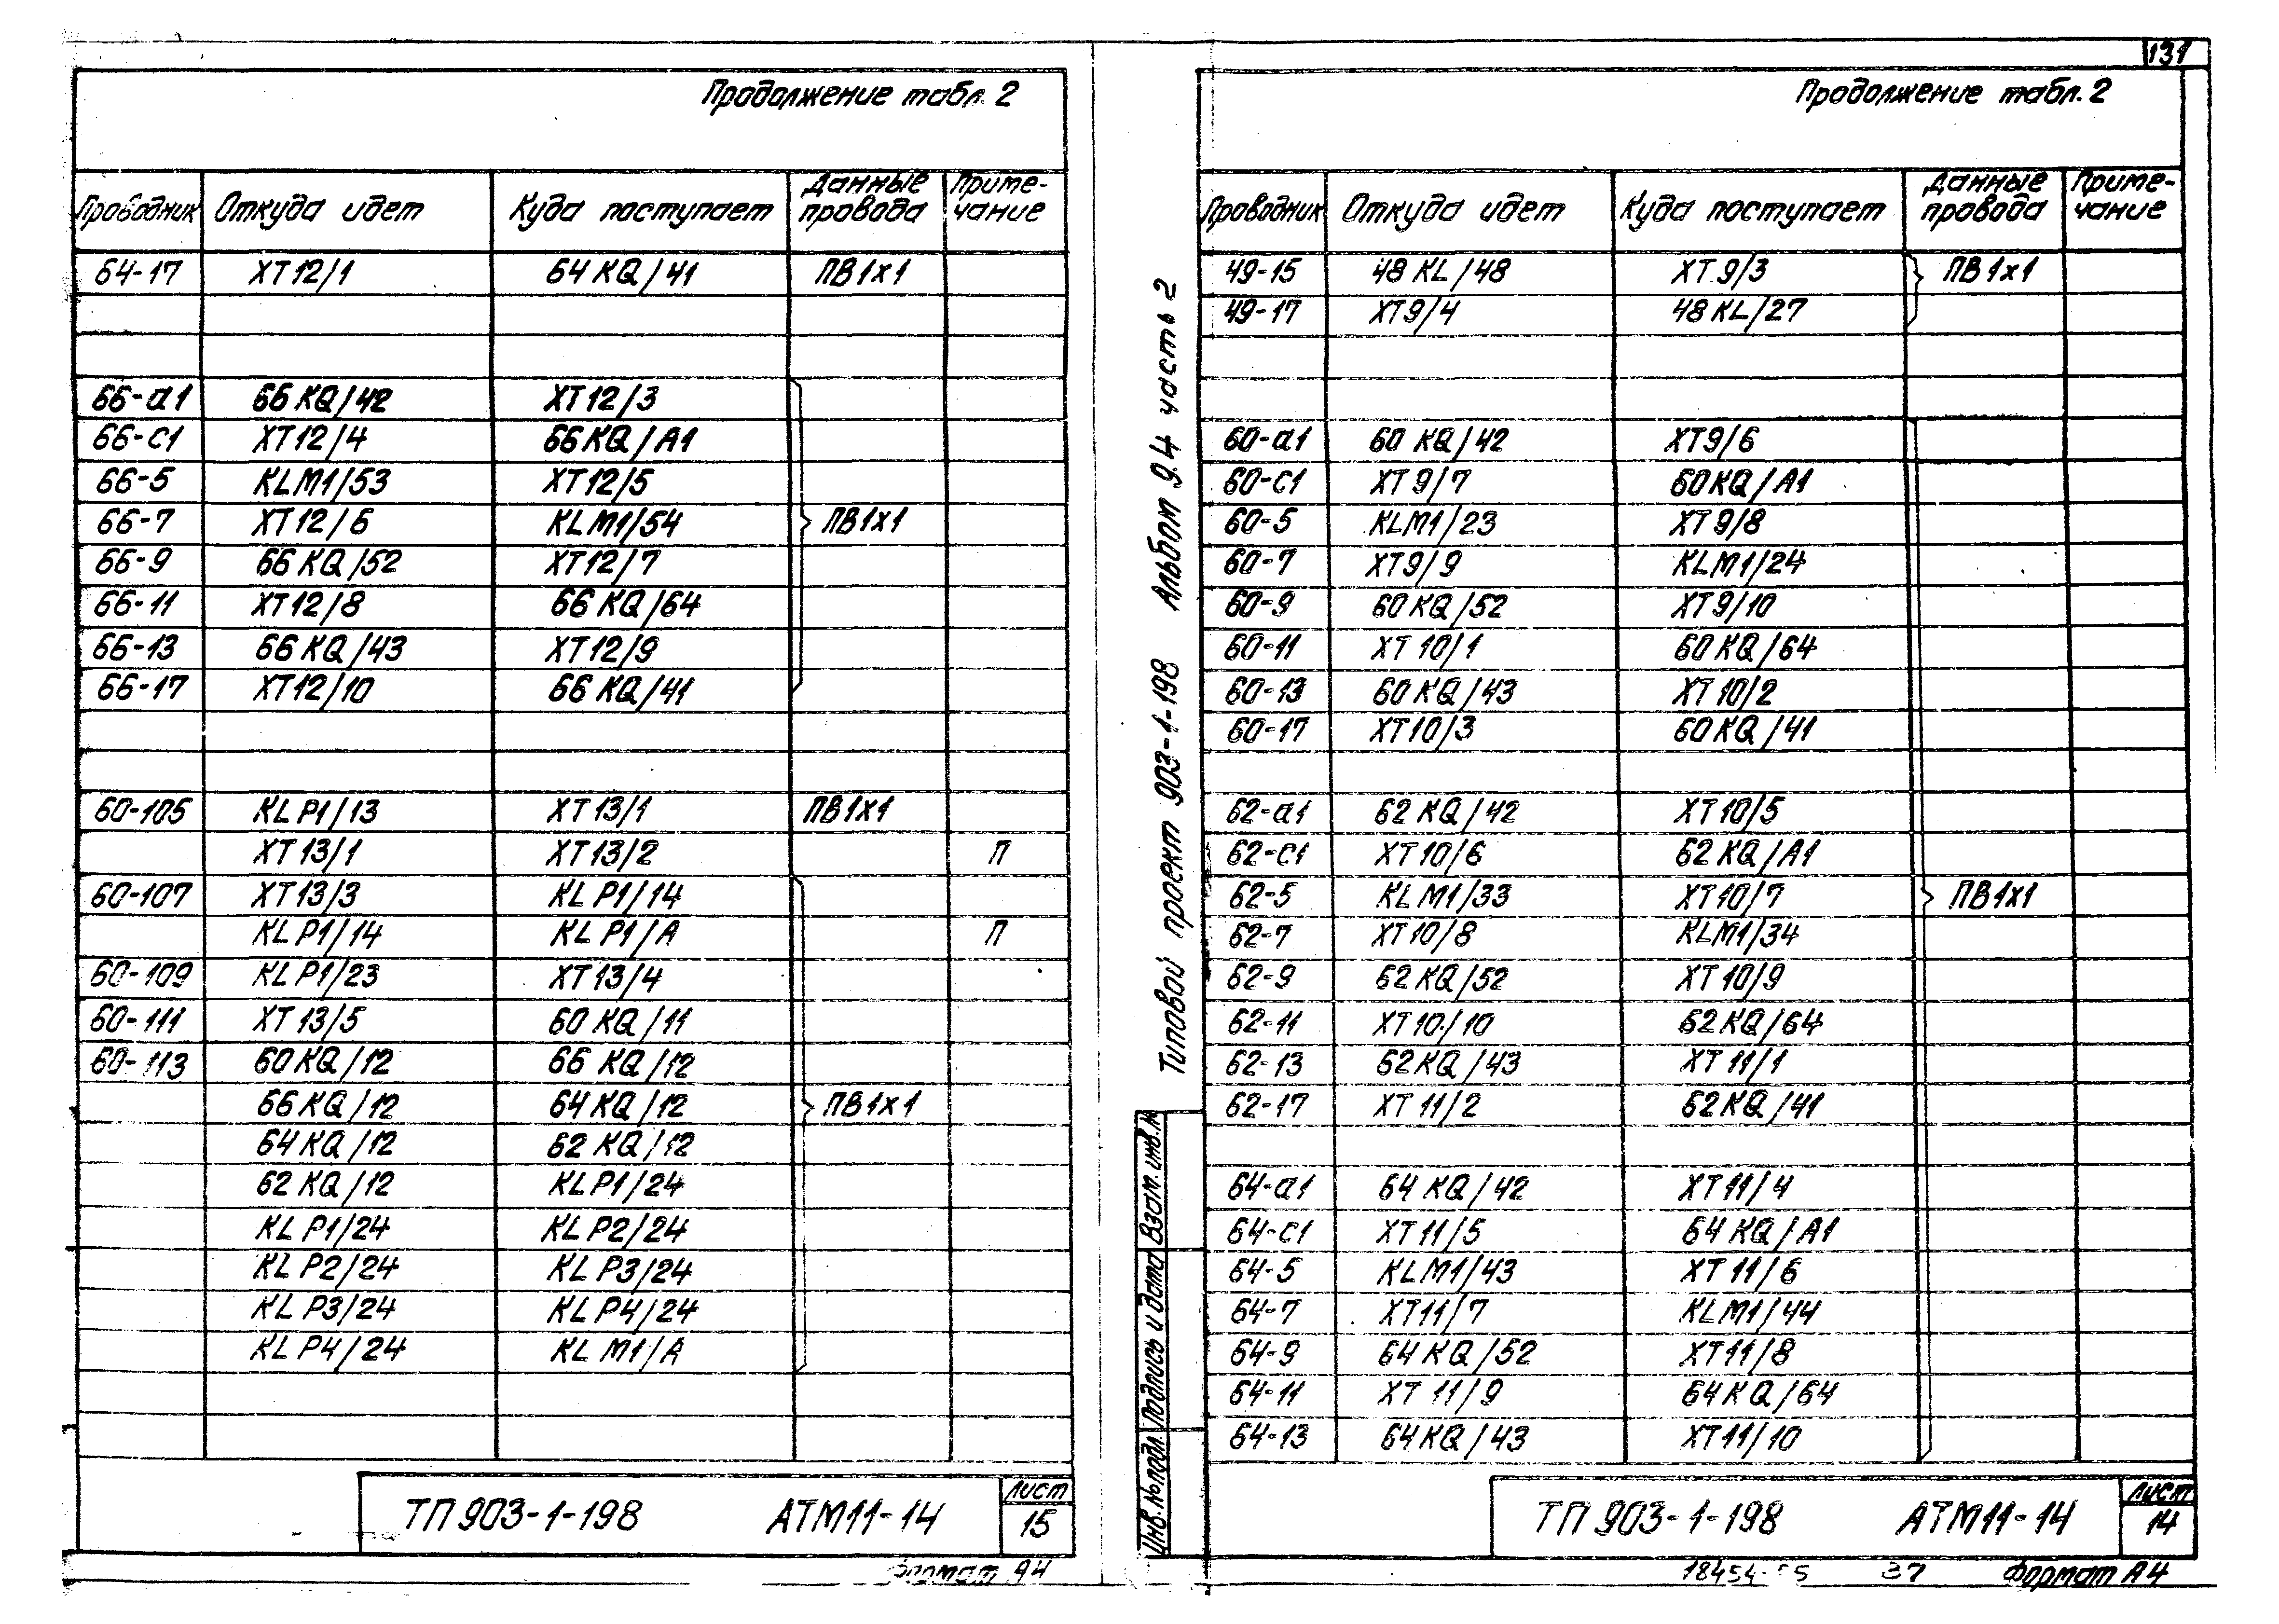 131
Продолжение табл. 2
Проводник Откуда идет Куда поступает Данные провода Приме-чание
64-17 XT12/1 64KQ/41 ПВ1х1
66-а1 66KQ/42 XT12/3
66-с1 XT12/4 66KQ/A1
66-5 KLM1/53 XT12/5
66-7 XT12/6 KLM1/54 ПВ1х1
66-9 66KQ/52 XT12/7
66-11 XT12/8 66KQ/64
66-13 66KQ/43 XT12/9
66-17 XT12/10 66KQ/41
60-105 KLP1/13 XT13/1 ПВ1х1
XT13/1 XT13/2 П
60-107 XT13/3 KLP1/14
KLP1/14 KLP1/A П
60-109 KLP1/23 XT13/4
60-111 XT13/5 60KQ/11
60-113 60KQ/12 66KQ/12
66KQ/12 64KQ/12 ПВ1х1
64KQ/12 62KQ/12
62KQ/12 KLP1/24
KLP1/24 KLP2/24
KLP2/24 KLP3/24
KLP3/24 KLP4/24
KLP4/24 KLM1/A
ТП 903-1-198 АТМ11-14 Лист 15
Формат А4
Типовой проект 903-1-198 Альбом 9.4 часть 2
Инв. № подл. Подпись и дата Взам. инв. №
Продолжение табл. 2
Проводник Откуда идет Куда поступает Данные провода Приме-чание
49-15 48KL/48 XT9/3 ПВ1х1
49-17 XT9/4 48KL/27
60-а1 60KQ/42 XT9/6
60-с1 XT9/7 60KQ/A1
60-5 KLM1/23 XT9/8
60-7 XT9/9 KLM1/24
60-9 60KQ/52 XT9/10
60-11 XT10/1 60KQ/64
60-13 60KQ/43 XT10/2
60-17 XT10/3 60KQ/41
62-а1 62KQ/42 XT10/5
62-с1 XT10/6 62KQ/A1
62-5 KLM1/33 XT10/7 ПВ1х1
62-7 XT10/8 KLM1/34
62-9 62KQ/52 XT10/9
62-11 XT10/10 62KQ/64
62-13 62KQ/43 XT11/1
62-17 XT11/2 62KQ/41
64-а1 64KQ/42 XT11/4
64-с1 XT11/5 64KQ/A1
64-5 KLM1/43 XT11/6
64-7 XT11/7 KLM1/44
64-9 64KQ/52 XT11/8
64-11 XT11/9 64KQ/64
64-13 64KQ/43 XT11/10
ТП 903-1-198 АТМ11-14 Лист 14
37 Формат А4